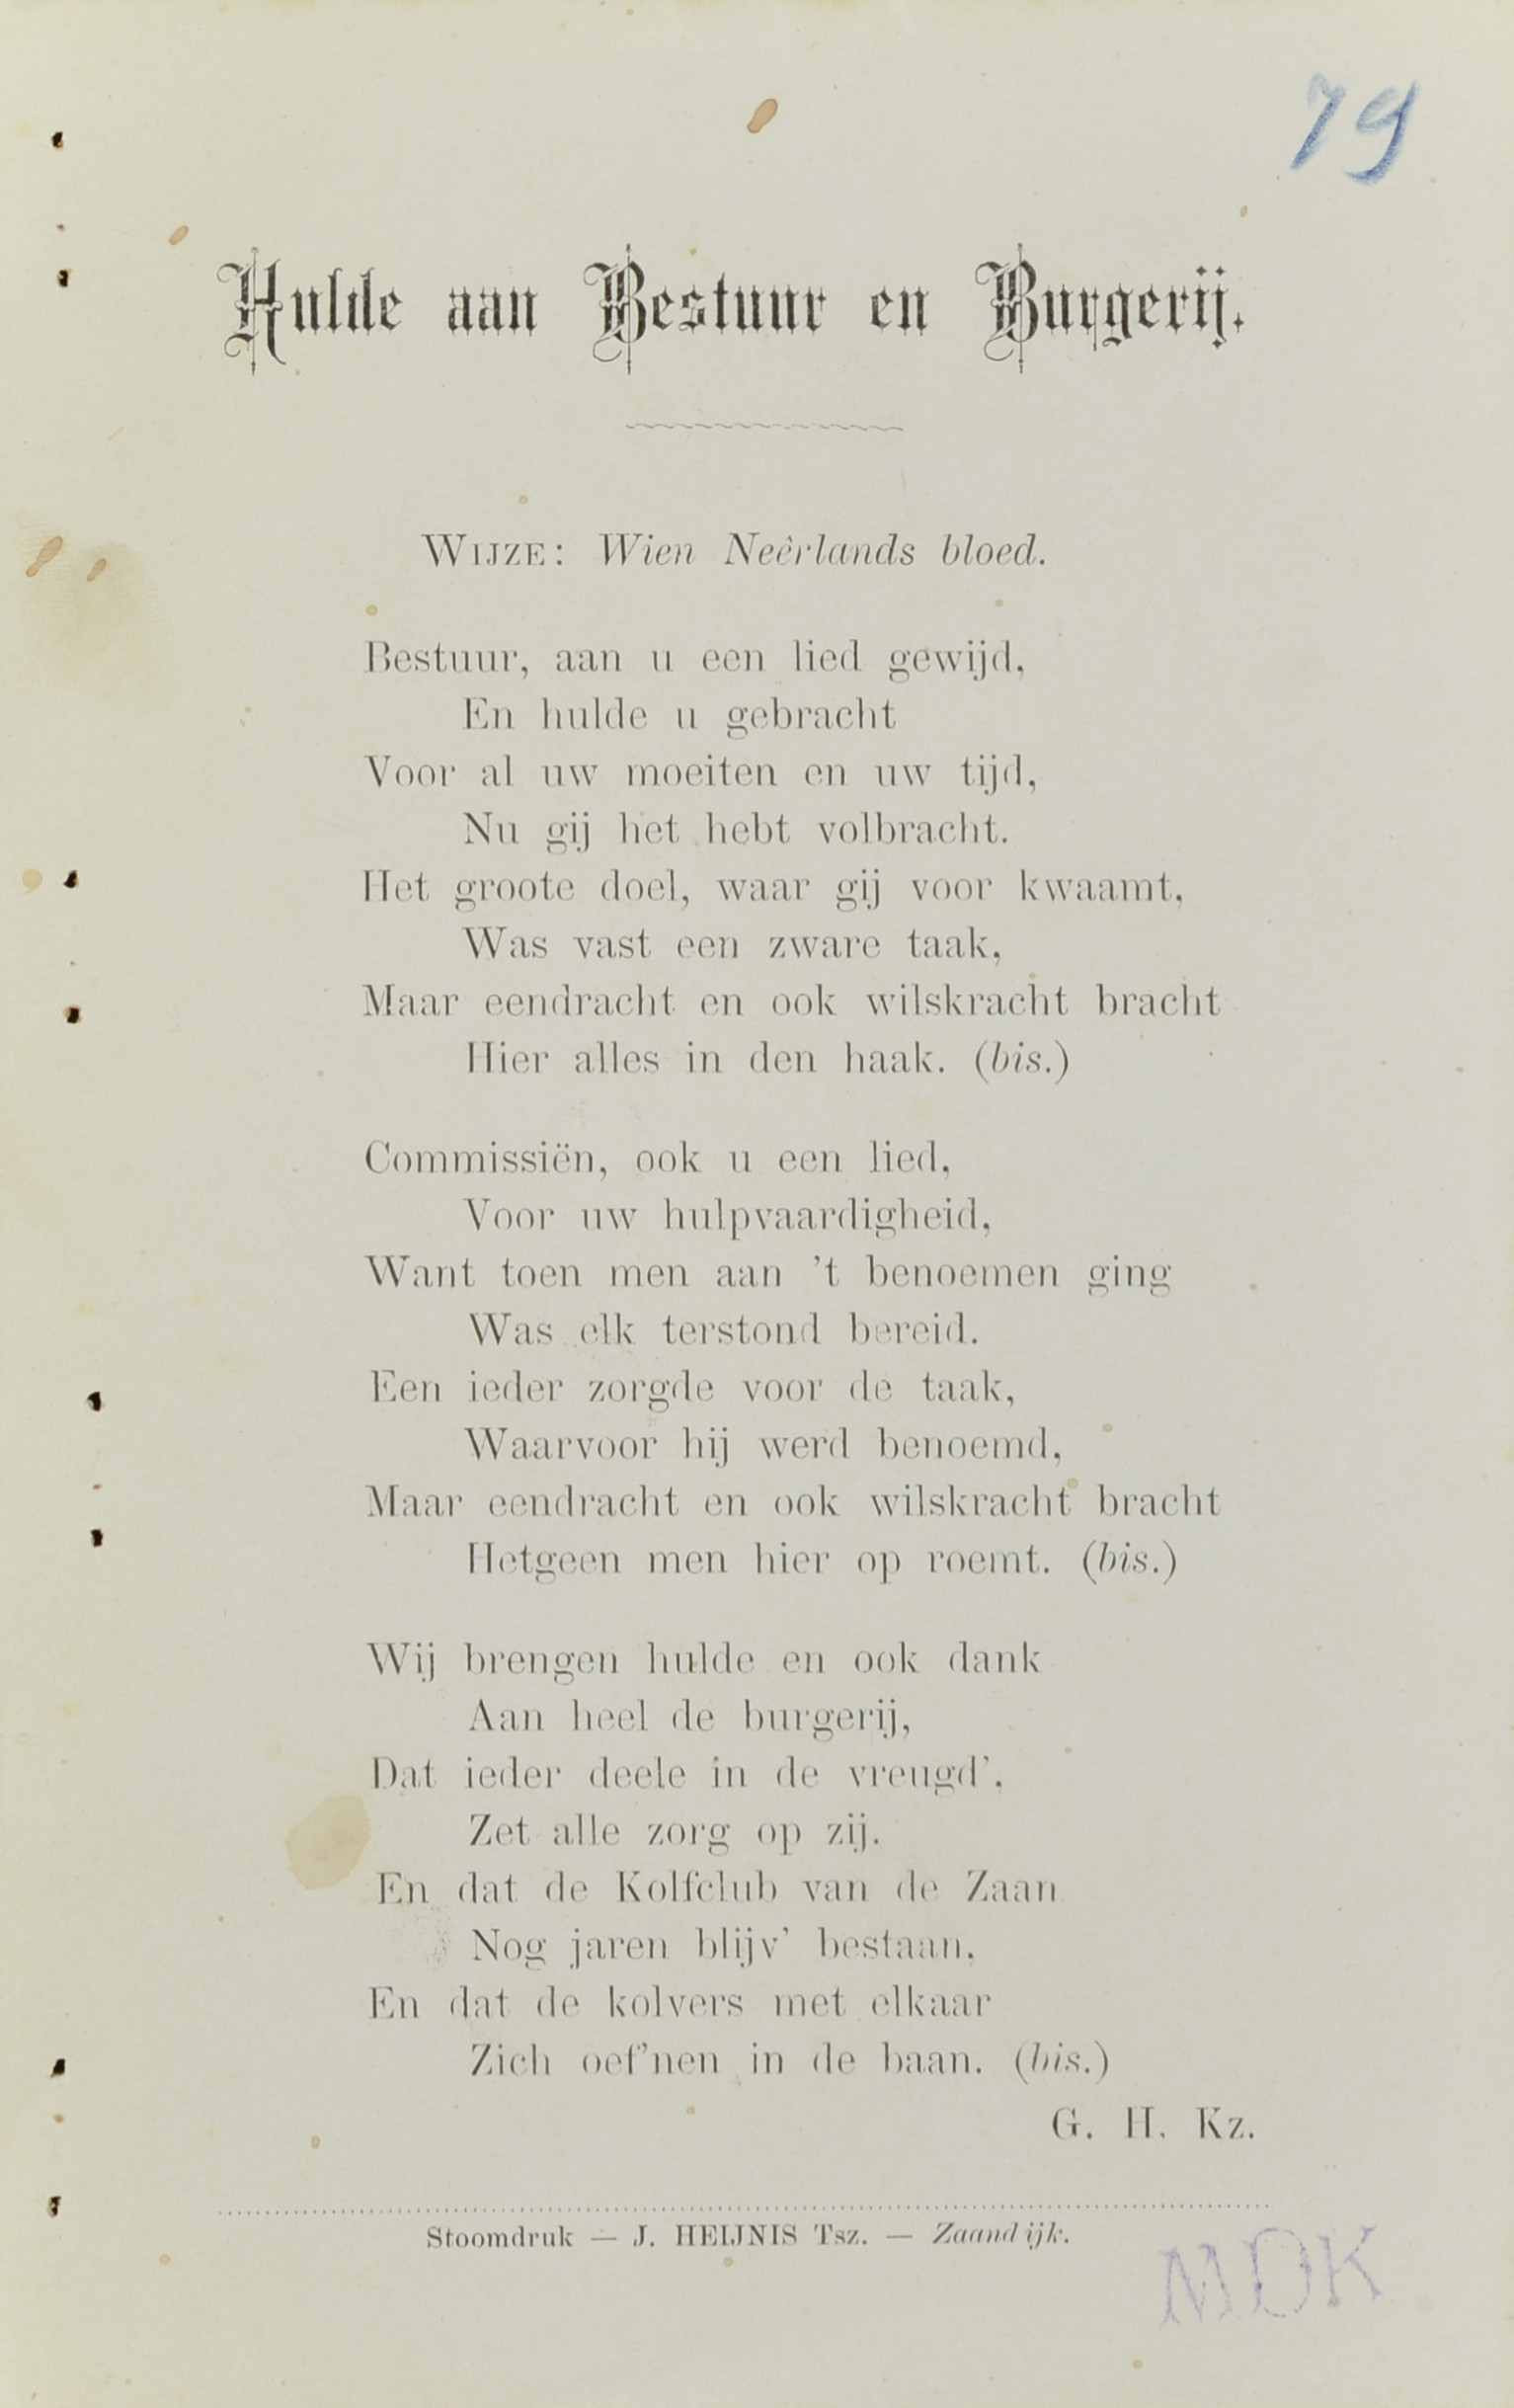 79
Hulde aan Bestuur en Burgerij.
WIJZE: Wien Neêrlands bloed.
Bestuur, aan u een lied gewijd,
En hulde u gebracht
Voor al uw moeiten en uw tijd,
Nu gij het hebt volbracht.
Het groote doel, waar gij voor kwaamt,
Was vast een zware taak,
Maar eendracht en ook wilskracht bracht
Hier alles in den haak. (bis.)
Commissiën, ook u een lied,
Voor uw hulpvaardigheid,
Want toen men aan 't benoemen ging
Was elk terstond bereid.
Een ieder zorgde voor de taak,
Waarvoor hij werd benoemd,
Maar eendracht en ook wilskracht bracht
Hetgeen men hier op roemt. (bis.)
Wij brengen hulde en ook dank
Aan heel de burgerij,
Dat ieder deele in de vreugd',
Zet alle zorg op zij.
En dat de Kolfclub van de Zaan
Nog jaren blijv' bestaan,
En dat de kolvers met elkaar
Zich oef'nen in de baan. (bis.)
G. H. Kz.
Stoomdruk — J. HEIJNIS Tsz. — Zaandijk.
MDK